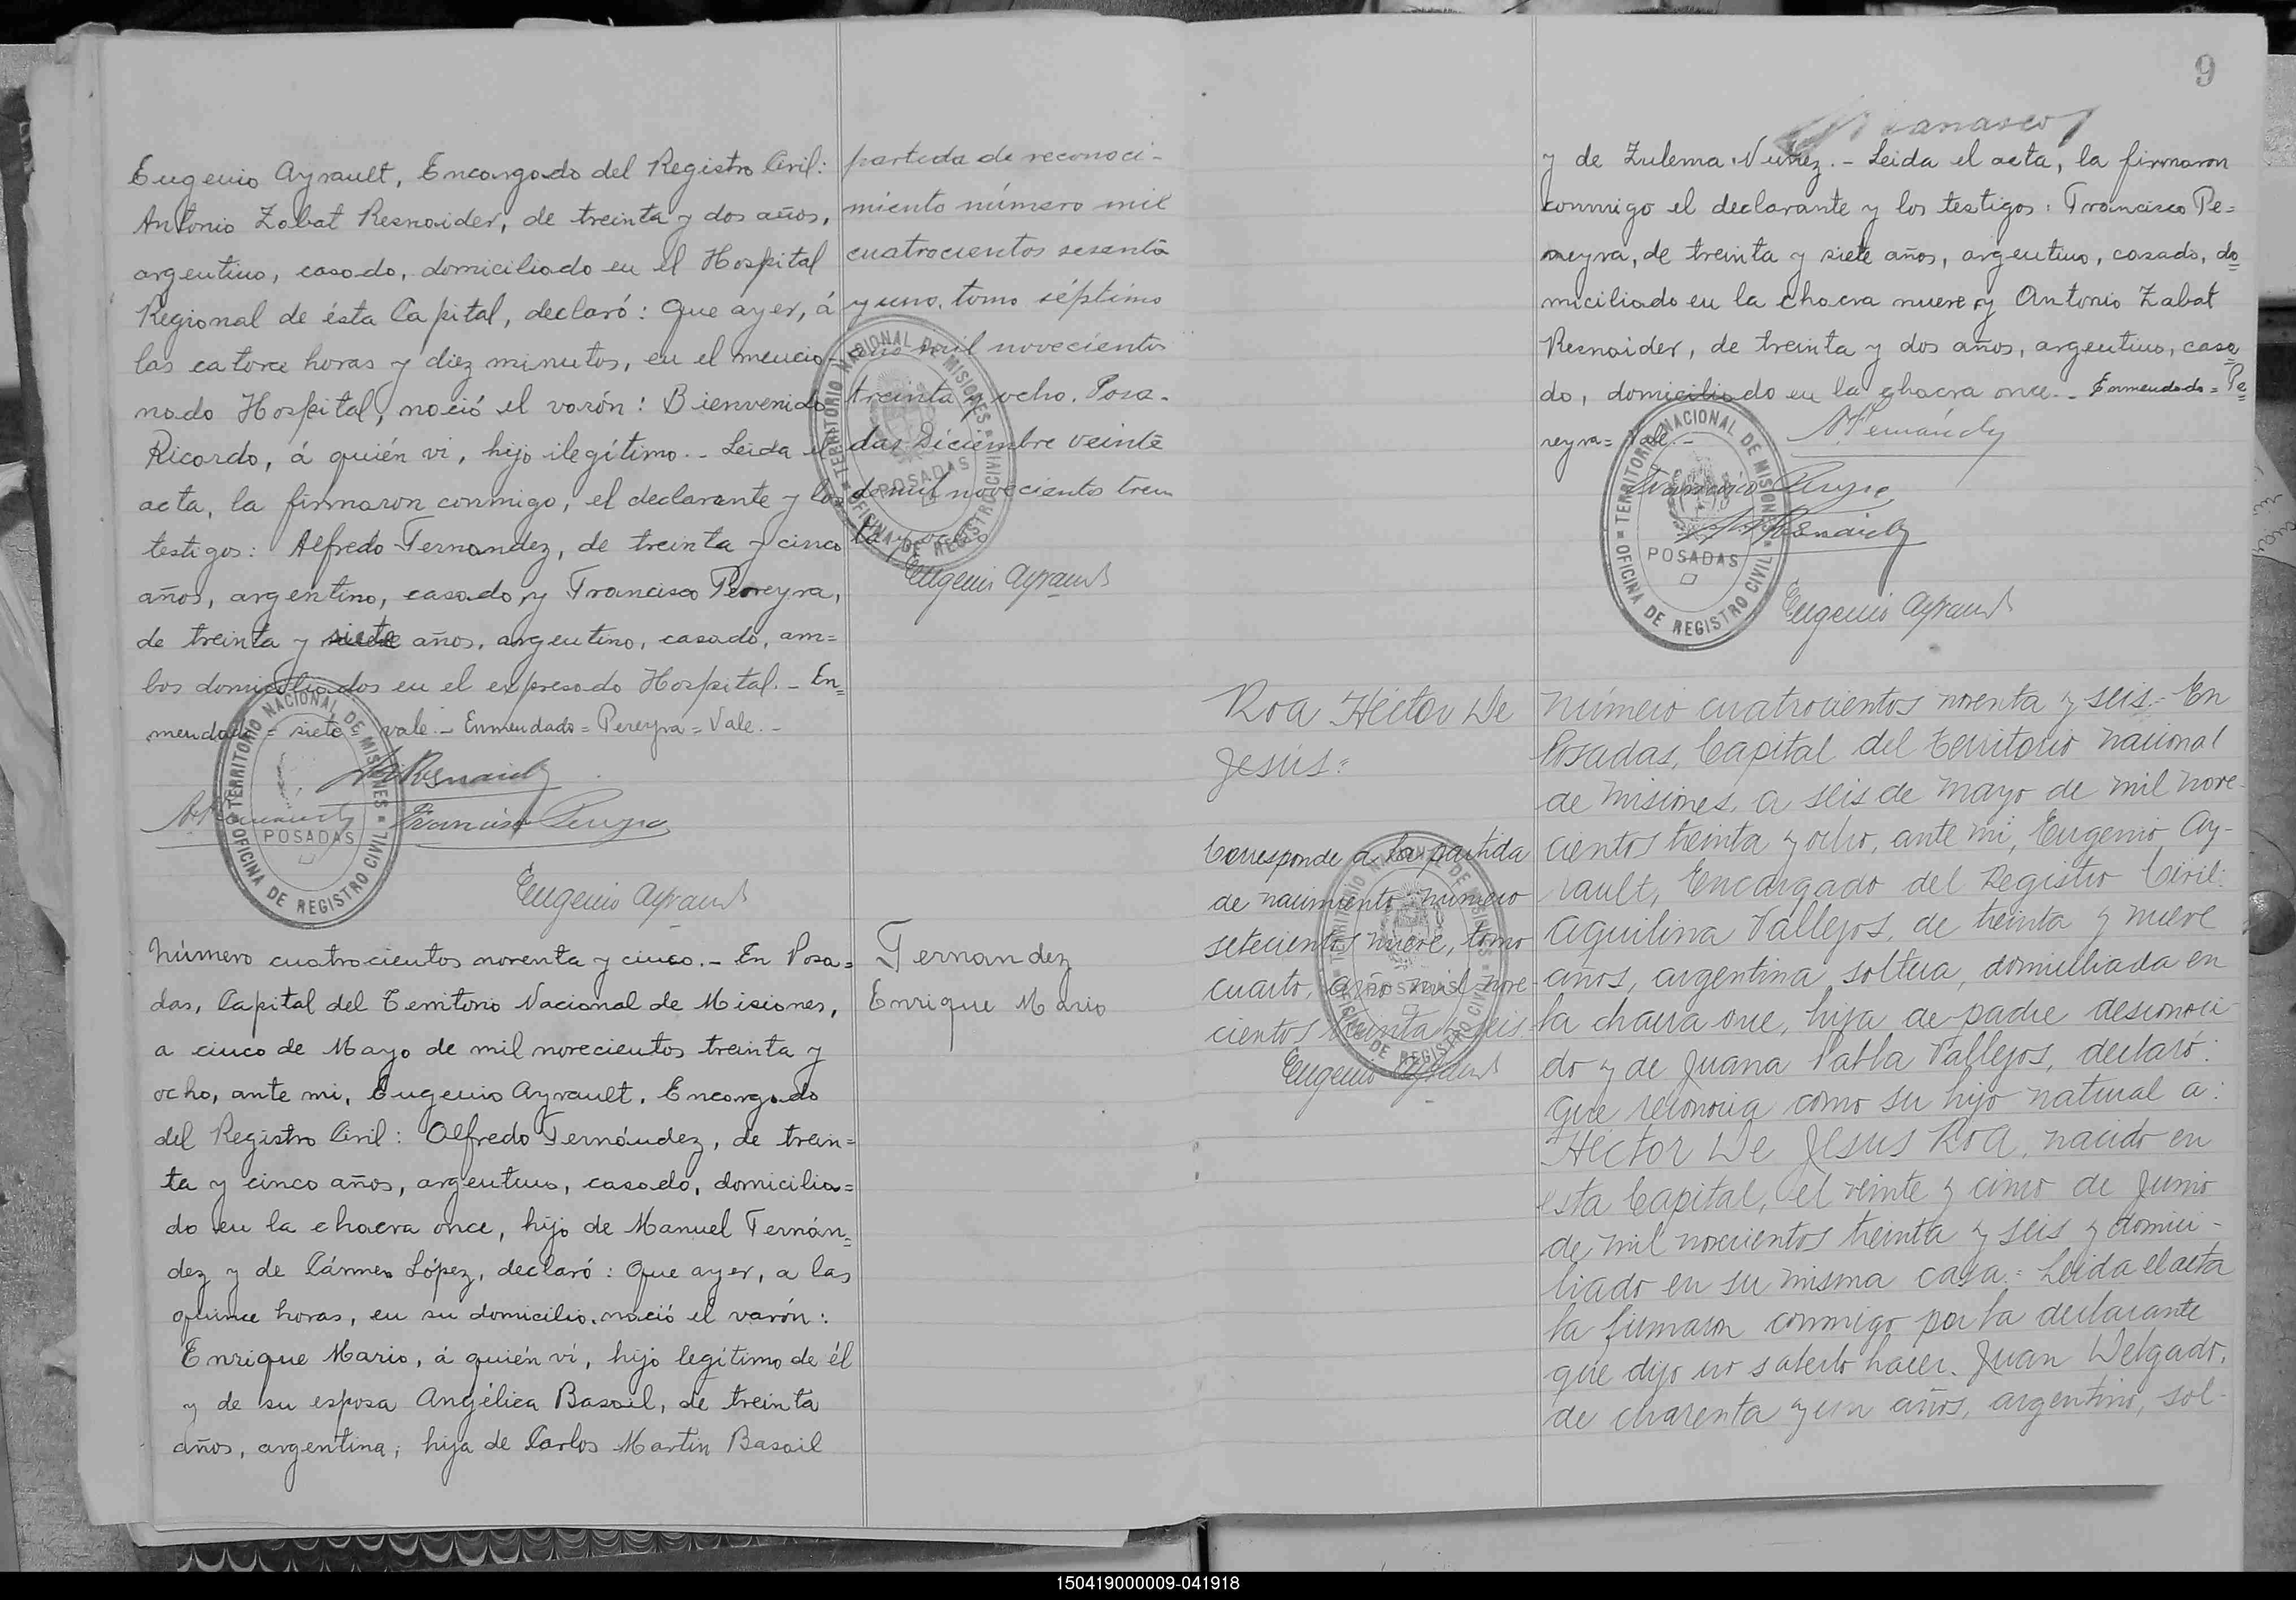 Eugenio Ayrault, Encargado del Registro Civil:
Antonio Zabat Resnaider, de treinta y dos años,
argentino, casado, domiciliado en el Hospital
Regional de ésta Capital, declaró: Que ayer, á
las catorce horas y diez minutos, en el mencio-
nado Hospital, nació el varón: Bienvenido
Ricardo, á quién vi, hijo ilegítimo.- Leida el
acta, la firmaron conmigo, el declarante y los
testigos: Alfredo Fernandez, de treinta y cinco
años, argentino, casado, y Francisco Pereyra,
de treinta y siete años, argentino, casado, am=
bos domiciliados en el expresado Hospital.- En=
mendado = siete = vale.- Enmendado = Pereyra = Vale.-
Francisco Pereyra
Eugenio Ayrault
TERRITORIO NACIONAL DE MISIONES
POSADAS
OFICINA DE REGISTRO CIVIL
partida de reconoci-
miento número mil
cuatrocientos sesenta
y uno, tomo séptimo
año mil novecientos
treinta y ocho. Posa-
das Diciembre veinte
de mil novecientos trein
ta y ocho
Eugenio Ayrault
TERRITORIO NACIONAL DE MISIONES
POSADAS
OFICINA DE REGISTRO CIVIL
Número cuatrocientos noventa y cinco.- En Posa=
das, Capital del Territorio Nacional de Misiones,
a cinco de Mayo de mil novecientos treinta y
ocho, ante mi, Eugenio Ayrault, Encargado
del Registro Civil: Alfredo Fernández, de trein=
ta y cinco años, argentino, casado, domicilia=
do en la chacra once, hijo de Manuel Fernán=
dez y de Cármen López, declaró: Que ayer, a las
quince horas, en su domicilio, nació el varón:
Enrique Mario, á quién ví, hijo legítimo de él
y de su esposa Angélica Basail, de treinta
años, argentina; hija de Carlos Martin Basail
Fernandez
Enrique Mario
9
y de Zulema Nuñez.- Leida el acta, la firmaron
conmigo el declarante y los testigos: Francisco Pe=
reyra, de treinta y siete años, argentino, casado, do=
miciliado en la chacra nueve y Antonio Zabat
Resnaider, de treinta y dos años, argentino, casa=
do, domiciliado en la chacra once.- Enmendado = Pe=
reyra = Vale.-
A. Fernández
Francisco Pereyra
Eugenio Ayrault
TERRITORIO NACIONAL DE MISIONES
POSADAS
OFICINA DE REGISTRO CIVIL
Roa Héctor De
Jesús =
Corresponde a la partida
de nacimiento número
setecientos nueve, tomo
cuarto, año mil nove-
cientos treinta y seis.
Eugenio Ayrault
TERRITORIO NACIONAL DE MISIONES
POSADAS
OFICINA DE REGISTRO CIVIL
Número cuatrocientos noventa y seis.- En
Posadas, Capital del Territorio Nacional
de Misiones, a seis de Mayo de mil nove-
cientos treinta y ocho, ante mi, Eugenio Ay-
rault, Encargado del Registro Civil:
Aquilina Vallejos, de treinta y nueve
años, argentina, soltera, domiciliada en
la chacra once, hija de padre desconoci
do y de Juana Pabla Vallejos, declaró:
Que reconocia como su hijo natural a:
Héctor De Jesús Roa, nacido en
esta Capital, el veinte y cinco de Junio
de mil novecientos treinta y seis y domici-
liado en su misma casa.= Leida el acta
la firmaron conmigo por la declarante
que dijo no saberlo hacer, Juan Delgado,
de cuarenta y un años, argentino, sol-
150419000009-041918